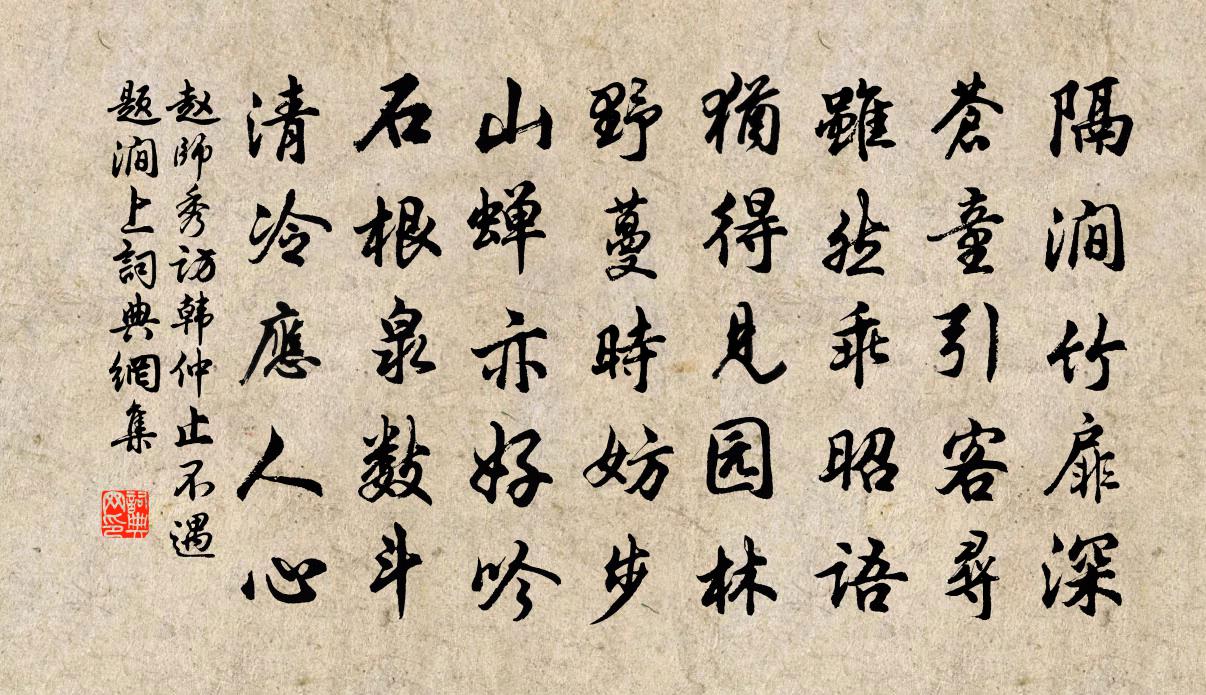 隔澗竹扉深
蒼童引客尋
雖然乖昭語
猶得見园林
野蔓時妨步
山蝉亦好吟
石根泉數斗
清冷應人心
赵師秀访韩仲止不遇
题澗上詞典網集
詞典
网印